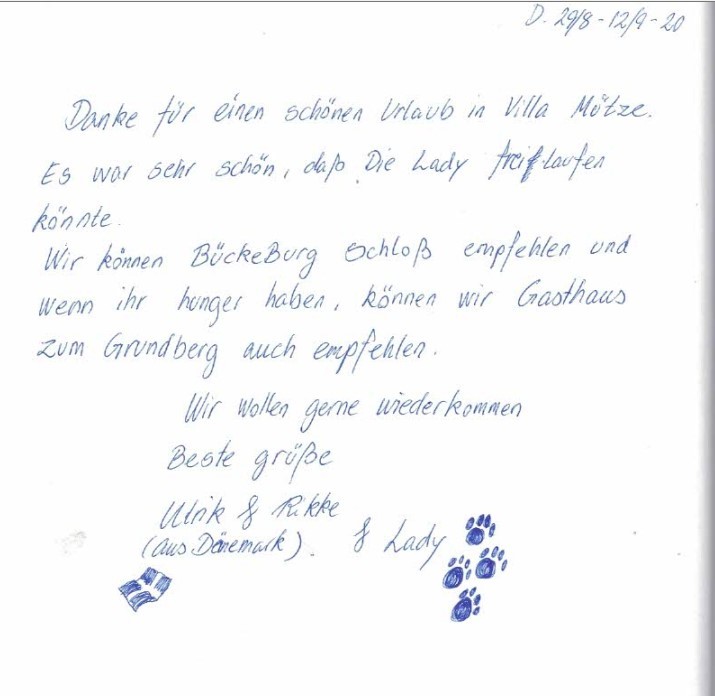 D. 29/8 - 12/9 - 20
Danke für einen schönen Urlaub in Villa Mütze.
Es war sehr schön, daß Die Lady frei laufen
könnte.
Wir können BückeBurg Schloß empfehlen und
wenn ihr hunger haben, können wir Gasthaus
zum Grundberg auch empfehlen.
Wir wollen gerne wiederkommen
Beste grüße
Ulrik & Rikke
(aus Dänemark). & Lady